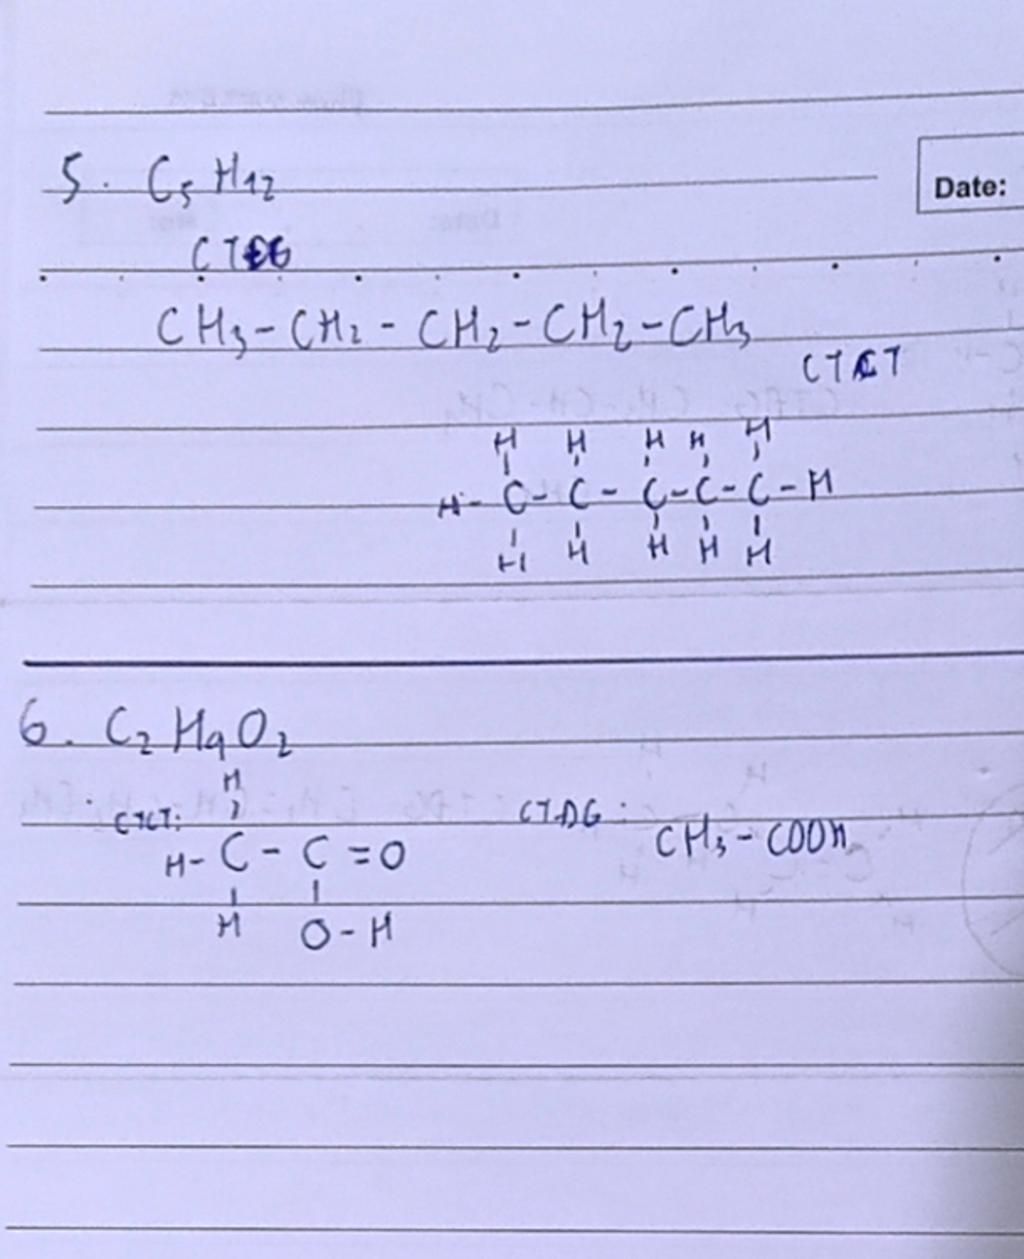 5. C5H12
Date:
CTCG
CH3-CH2-CH2-CH2-CH3
CTCT
H H H H H
H-C-C-C-C-C-H
H H H H H
6. C2H4O2
H
CTCT:
CTDG:
H-C-C=O
CH3-COOH
H O-H